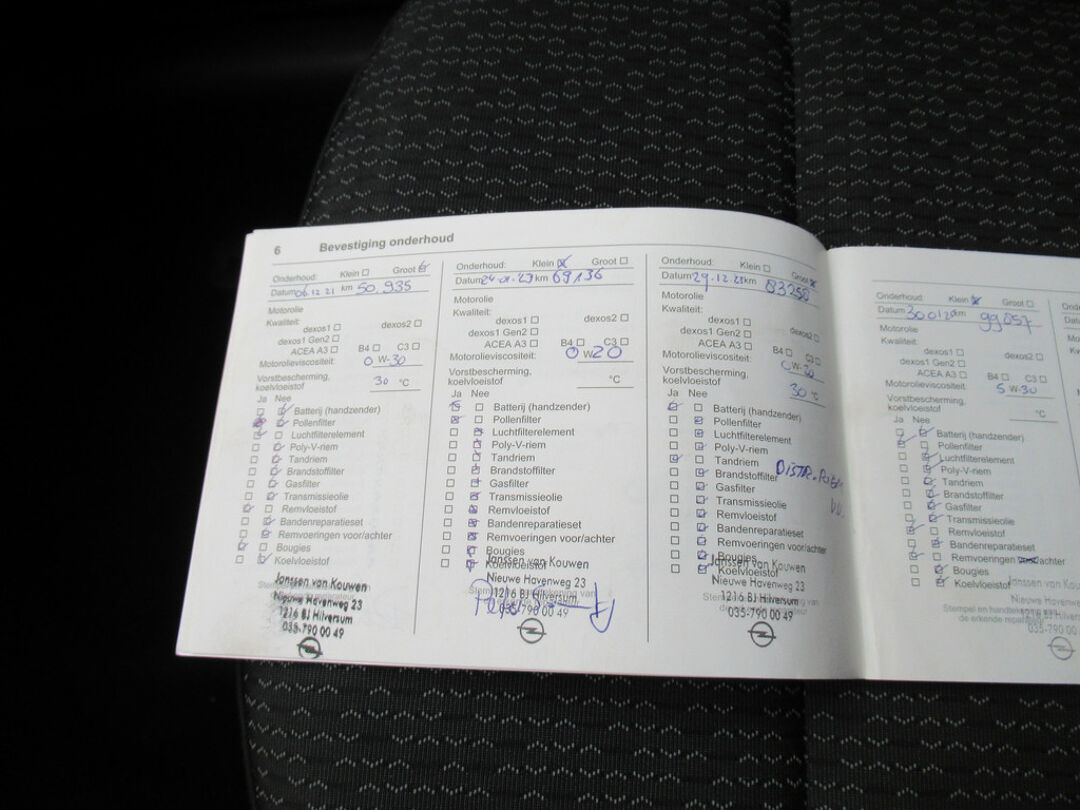 6 Bevestiging onderhoud
Onderhoud: Klein Groot
Datum 06.12 21 km 50.935
Motorolie
Kwaliteit:
dexos1 dexos2
dexos1 Gen2
ACEA A3 B4 C3
Motorolieviscositeit: 0 W-30
Vorstbescherming,
koelvloeistof 30 °C
Ja Nee
Batterij (handzender)
Pollenfilter
Luchtfilterelement
Poly-V-riem
Tandriem
Brandstoffilter
Gasfilter
Transmissieolie
Remvloeistof
Bandenreparatieset
Remvoeringen voor/achter
Bougies
Koelvloeistof
Janssen van Kouwen
Nieuwe Havenweg 23
1216 BJ Hilversum
035-790 00 49
Onderhoud: Klein Groot
Datum 24-01-23 km 69136
Motorolie
Kwaliteit:
dexos1 dexos2
dexos1 Gen2
ACEA A3 B4 C3
Motorolieviscositeit: 0 W 20
Vorstbescherming,
koelvloeistof °C
Ja Nee
Batterij (handzender)
Pollenfilter
Luchtfilterelement
Poly-V-riem
Tandriem
Brandstoffilter
Gasfilter
Transmissieolie
Remvloeistof
Bandenreparatieset
Remvoeringen voor/achter
Bougies
Koelvloeistof
Janssen van Kouwen
Nieuwe Havenweg 23
1216 BJ Hilversum
035-790 00 49
Onderhoud: Klein Groot
Datum 29.12.23 km 83250
Motorolie
Kwaliteit:
dexos1 dexos2
dexos1 Gen2
ACEA A3 B4 C3
Motorolieviscositeit: W-
Vorstbescherming,
koelvloeistof 30 °C
Ja Nee
Batterij (handzender)
Pollenfilter
Luchtfilterelement
Poly-V-riem
Tandriem
Brandstoffilter DISTR.
Gasfilter
Transmissieolie
Remvloeistof
Bandenreparatieset
Remvoeringen voor/achter
Bougies
Koelvloeistof
Janssen van Kouwen
Nieuwe Havenweg 23
1216 BJ Hilversum
035-790 00 49
Onderhoud: Klein Groot
Datum km 99857
Motorolie
Kwaliteit:
dexos1 dexos2
dexos1 Gen2
ACEA A3 B4 C3
Motorolieviscositeit: 5 W-30
Vorstbescherming,
koelvloeistof °C
Ja Nee
Batterij (handzender)
Pollenfilter
Luchtfilterelement
Poly-V-riem
Tandriem
Brandstoffilter
Gasfilter
Transmissieolie
Remvloeistof
Bandenreparatieset
Remvoeringen
Bougies
Koelvloeistof
Janssen van
Nieuwe Havenweg
1216 BJ
035-790 00
Stempel en
de erkende